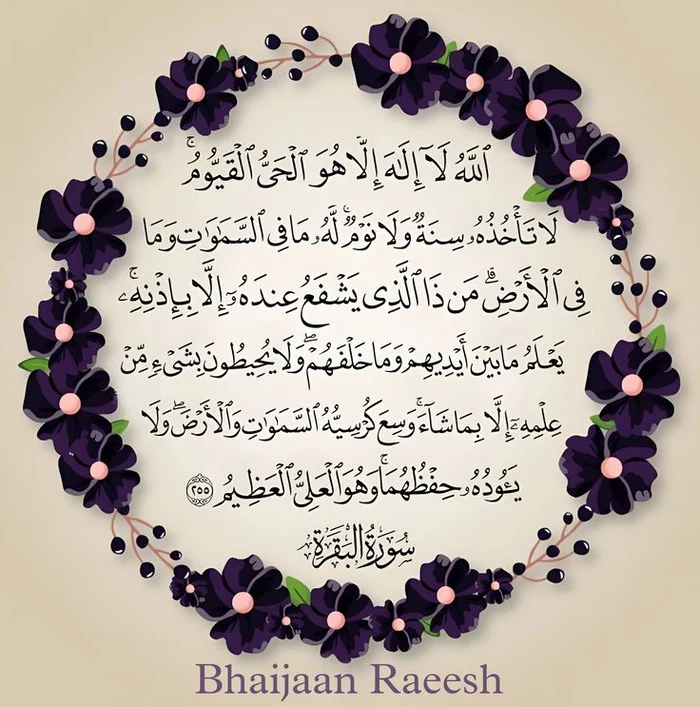 ٱللَّهُ لَآ إِلَٰهَ إِلَّا هُوَ ٱلْحَىُّ ٱلْقَيُّومُ ۚ
لَا تَأْخُذُهُۥ سِنَةٌ وَلَا نَوْمٌ ۚ لَّهُۥ مَا فِى ٱلسَّمَٰوَٰتِ وَمَا
فِى ٱلْأَرْضِ ۗ مَن ذَا ٱلَّذِى يَشْفَعُ عِندَهُۥٓ إِلَّا بِإِذْنِهِۦ ۚ
يَعْلَمُ مَا بَيْنَ أَيْدِيهِمْ وَمَا خَلْفَهُمْ ۖ وَلَا يُحِيطُونَ بِشَىْءٍ مِّنْ
عِلْمِهِۦٓ إِلَّا بِمَا شَآءَ ۚ وَسِعَ كُرْسِيُّهُ ٱلسَّمَٰوَٰتِ وَٱلْأَرْضَ ۖ وَلَا
يَـُٔودُهُۥ حِفْظُهُمَا ۚ وَهُوَ ٱلْعَلِىُّ ٱلْعَظِيمُ ٢٥٥
سُورَةُ البَقَرَةِ
Bhaijaan Raeesh